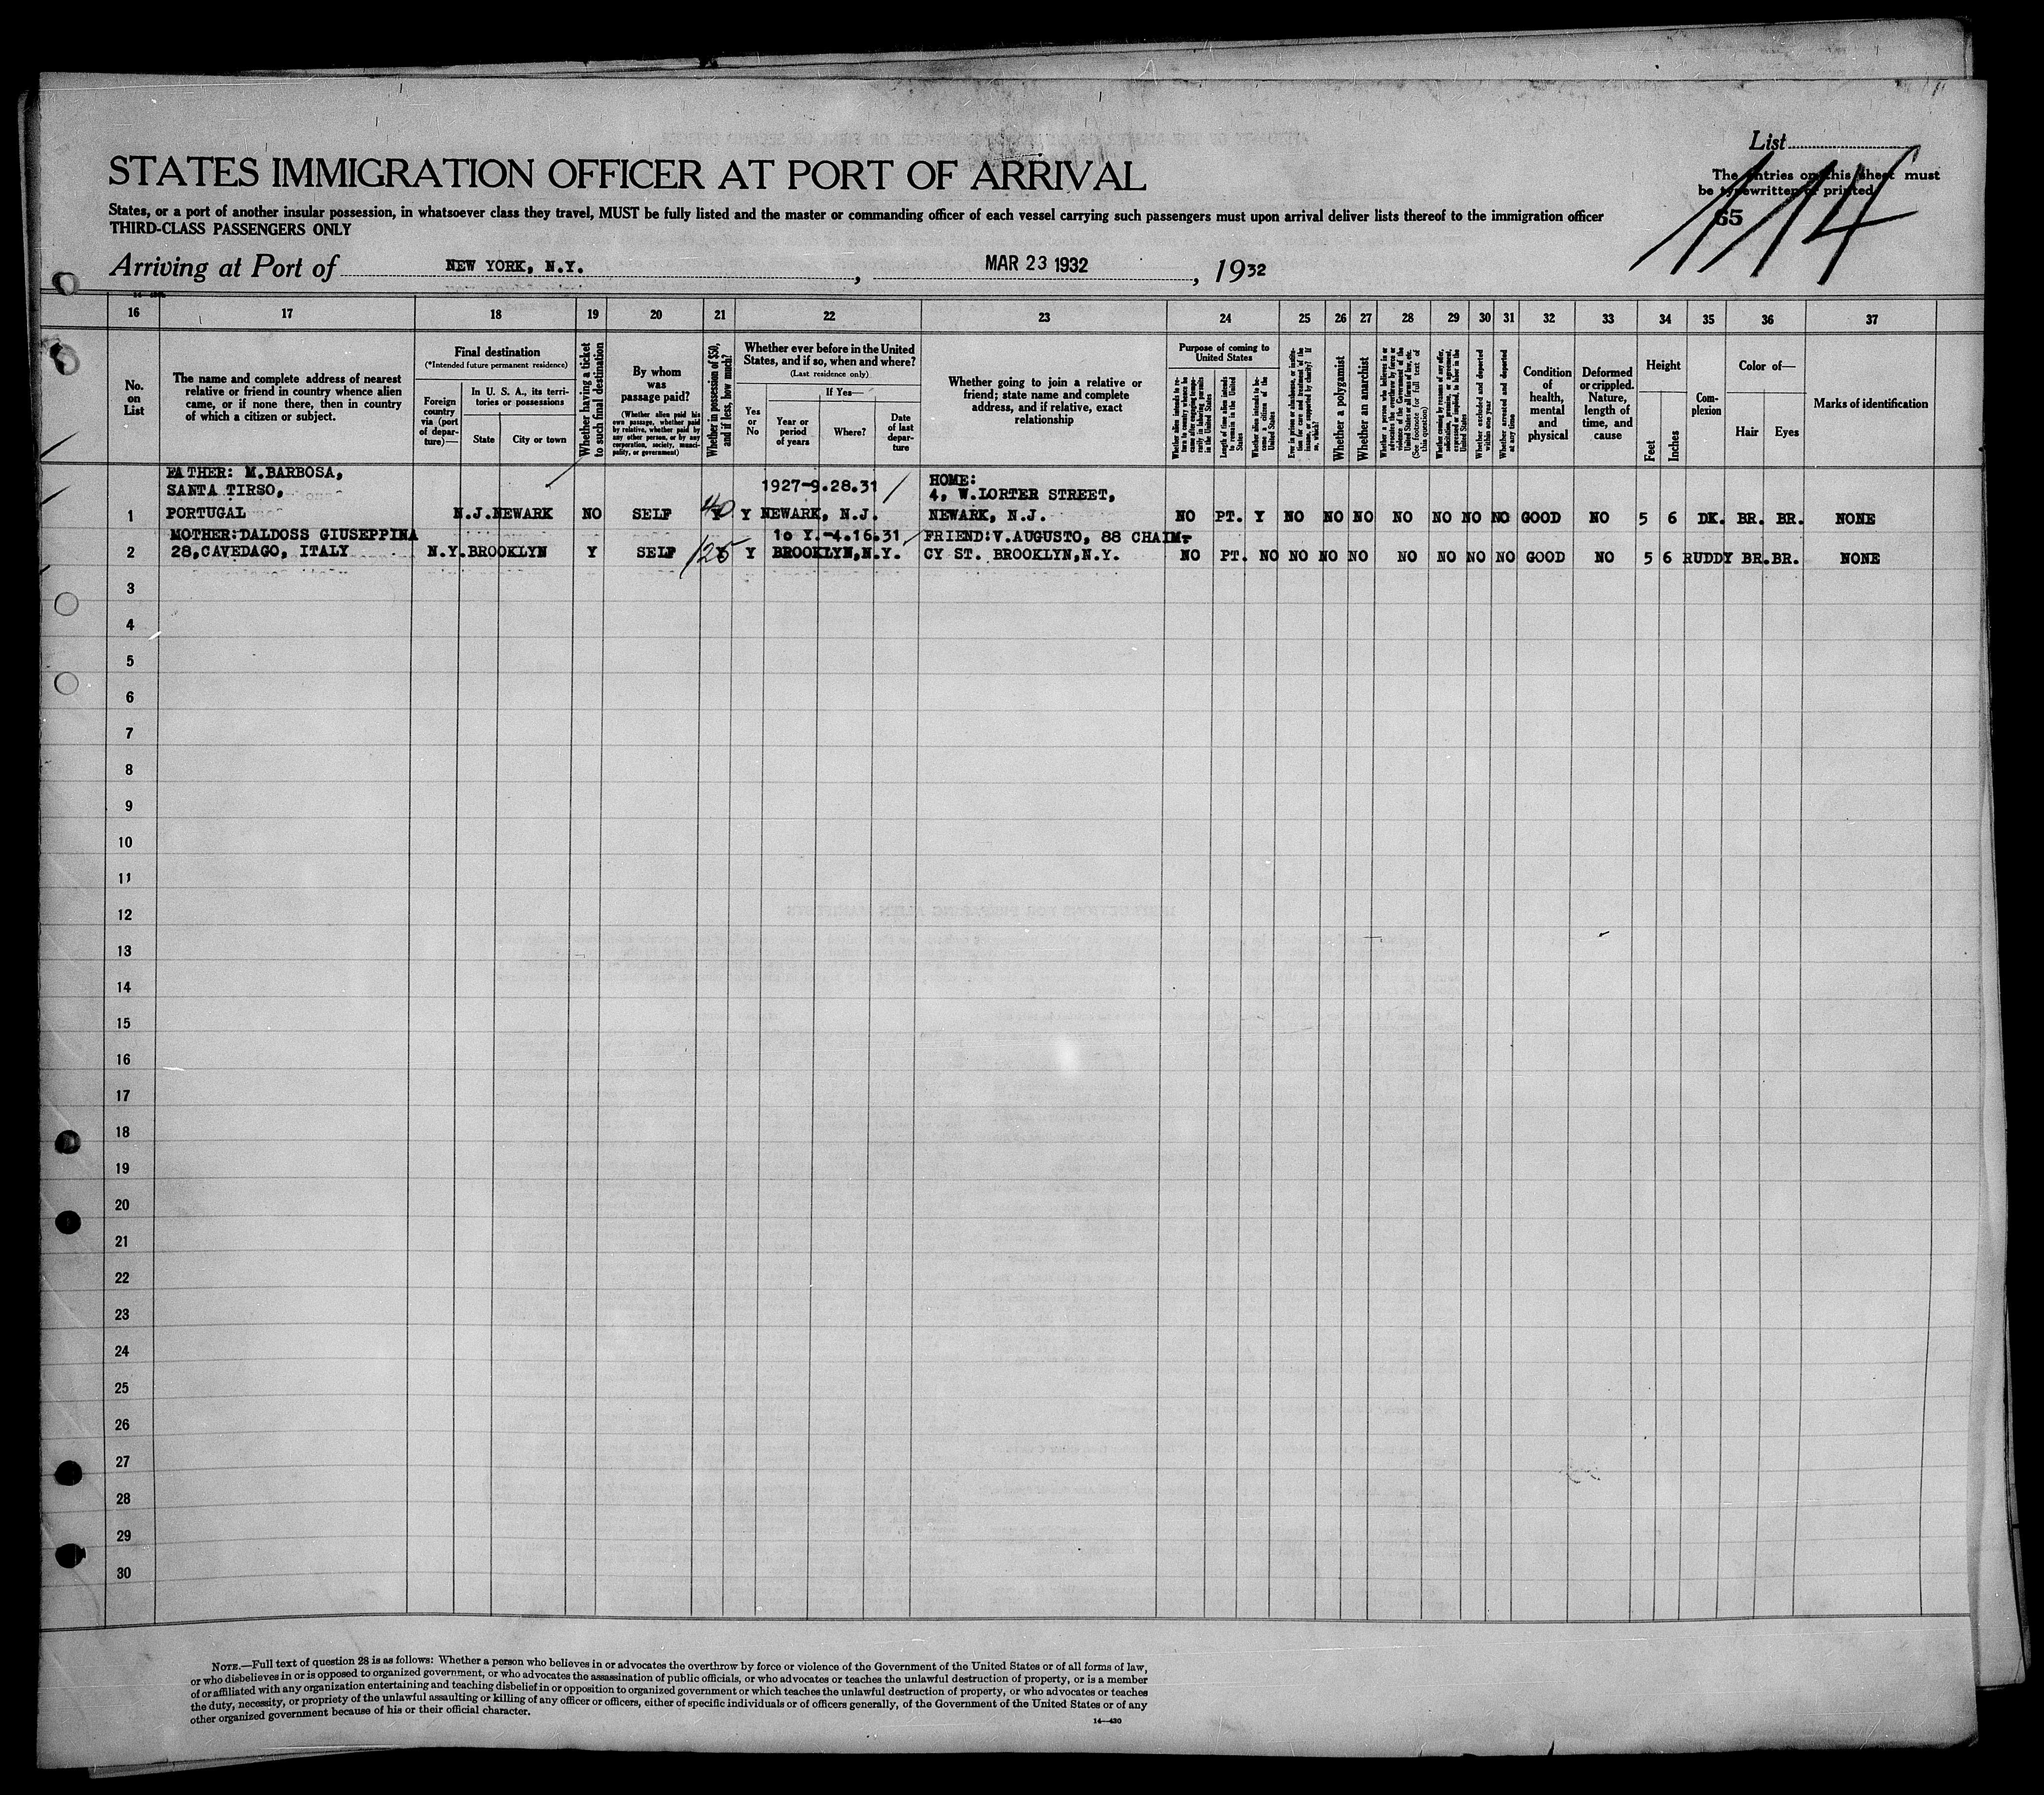 List
STATES IMMIGRATION OFFICER AT PORT OF ARRIVAL
The entries on this sheet must
be typewritten or printed
65
114
States, or a port of another insular possession, in whatsoever class they travel, MUST be fully listed and the master or commanding officer of each vessel carrying such passengers must upon arrival deliver lists thereof to the immigration officer
THIRD-CLASS PASSENGERS ONLY
Arriving at Port of NEW YORK, N.Y., MAR 23 1932, 1932
16 17 18 19 20 21 22 23 24 25 26 27 28 29 30 31 32 33 34 35 36 37
No.
on
List
The name and complete address of nearest
relative or friend in country whence alien
came, or if none there, then in country
of which a citizen or subject.
Final destination
(*Intended future permanent residence)
Foreign
country
via (port
of depar-
ture)—
In U. S. A., its terri-
tories or possessions
State
City or town
Whether having a ticket
to such final destination
By whom
was
passage paid?
(Whether alien paid his
own passage, whether paid
by relative, whether paid by
any other person, or by any
corporation, society, munici-
pality, or government)
Whether in possession of $50,
and if less, how much?
Whether ever before in the United
States, and if so, when and where?
(Last residence only)
Yes
or
No
If Yes—
Year or
period
of years
Where?
Date
of last
depar-
ture
Whether going to join a relative or
friend; state name and complete
address, and if relative, exact
relationship
Purpose of coming to
United States
Whether alien intends to re-
turn to country whence he
came after engaging tempo-
rarily in laboring pursuits
in the United States
Length of time alien intends
to remain in the United
States
Whether alien intends to be-
come a citizen of the
United States
Ever in prison or almshouse, or institu-
tion for care and treatment of the
insane, or supported by charity? If
so, which?
Whether a polygamist
Whether an anarchist
Whether a person who believes in or
advocates the overthrow by force or
violence of the Government of the
United States or all forms of law, etc.
(See footnote for full text of
this question)
Whether coming by reasons of any offer,
solicitation, promise, or agreement,
expressed or implied, to labor in the
United States
Whether excluded and deported
within one year
Whether arrested and deported
at any time
Condition
of
health,
mental
and
physical
Deformed
or crippled.
Nature,
length of
time, and
cause
Height
Feet
Inches
Com-
plexion
Color of—
Hair
Eyes
Marks of identification
FATHER: M.BARBOSA,
SANTA TIRSO, 1927-9.28.31 HOME:
4, W.LORTER STREET,
1 PORTUGAL N.J.NEWARK NO SELF 40 Y NEWARK, N.J. NEWARK, N.J. NO PT. Y NO NO NO NO NO NO NO GOOD NO 5 6 DK. BR. BR. NONE
MOTHER:DALDOSS GIUSEPPINA 10 Y.-4.16.31 FRIEND:V.AUGUSTO, 88 CHAIM-
2 28,CAVEDAGO, ITALY N.Y.BROOKLYN Y SELF 125 Y BROOKLYN,N.Y. CY ST. BROOKLYN,N.Y. NO PT. NO NO NO NO NO NO NO NO GOOD NO 5 6 RUDDY BR.BR. NONE
3
4
5
6
7
8
9
10
11
12
13
14
15
16
17
18
19
20
21
22
23
24
25
26
27
28
29
30
NOTE.—Full text of question 28 is as follows: Whether a person who believes in or advocates the overthrow by force or violence of the Government of the United States or of all forms of law,
or who disbelieves in or is opposed to organized government, or who advocates the assassination of public officials, or who advocates or teaches the unlawful destruction of property, or is a member
of or affiliated with any organization entertaining and teaching disbelief in or opposition to organized government or which teaches the unlawful destruction of property, or who advocates or teaches
the duty, necessity, or propriety of the unlawful assaulting or killing of any officer or officers, either of specific individuals or of officers generally, of the Government of the United States or of any
other organized government because of his or their official character.
14—430